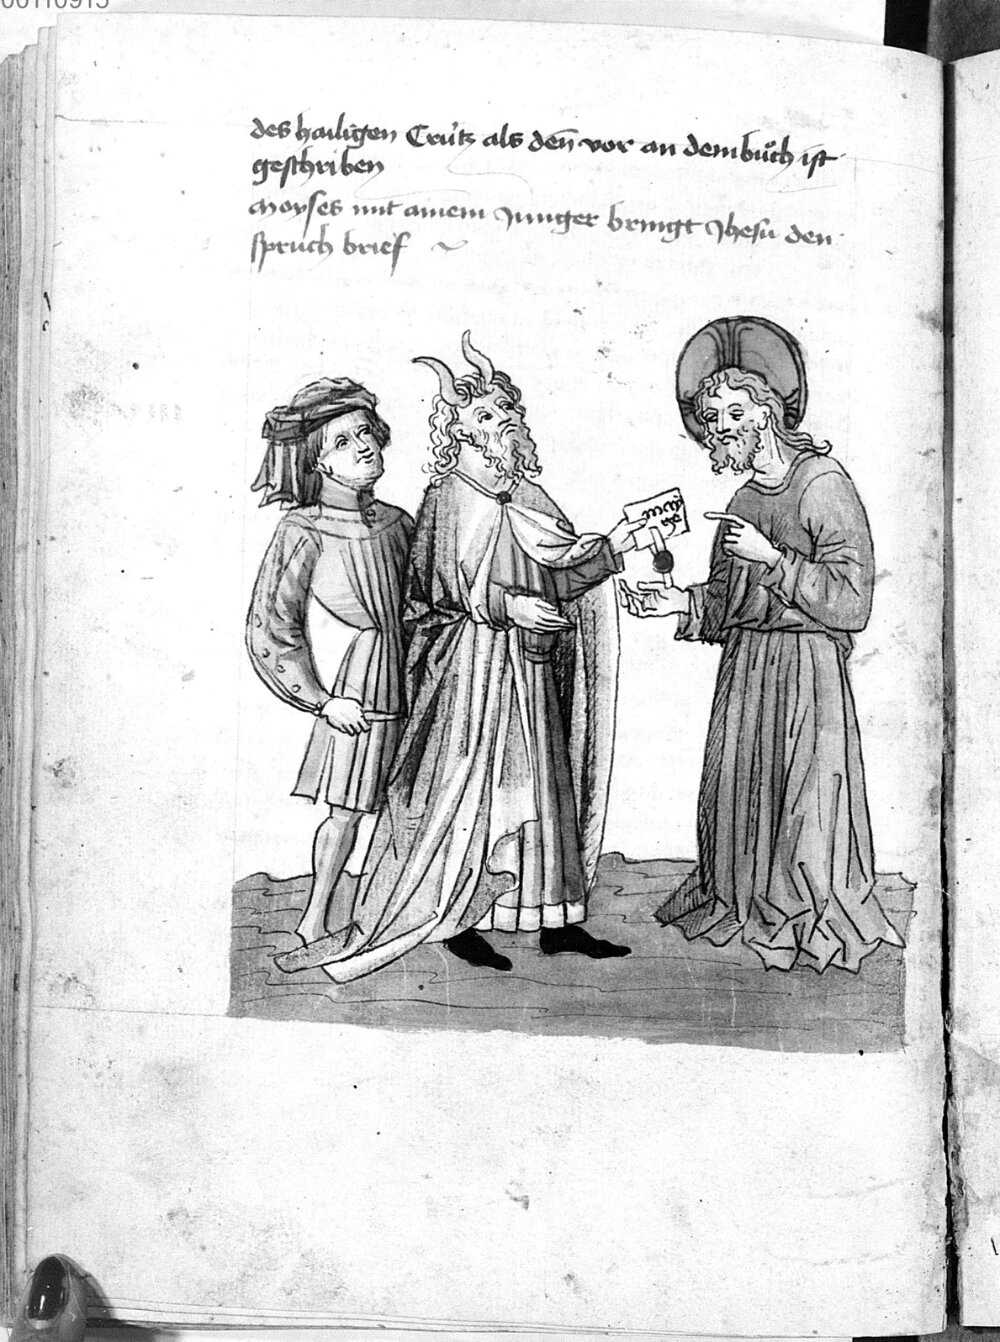 00110915
des hailigen Crütz als den vor an dem buͦch ist
geschriben
Moyses mit ainem Junger bringt Jhesu den
spruch brief